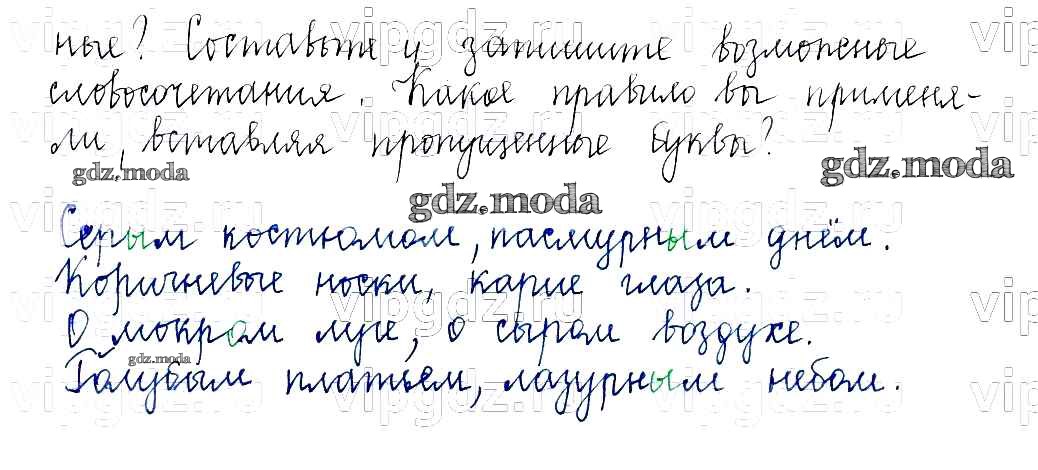 ные? Составьте и запишите возможные
словосочетания. Какое правило вы применя-
ли, вставляя пропущенные буквы?
gdz.moda
gdz.moda
gdz.moda
Серым костюмом, пасмурным днём.
Коричневые носки, карие глаза.
О мокром луге, о сыром воздухе.
gdz.moda
Голубым платьем, лазурным небом.